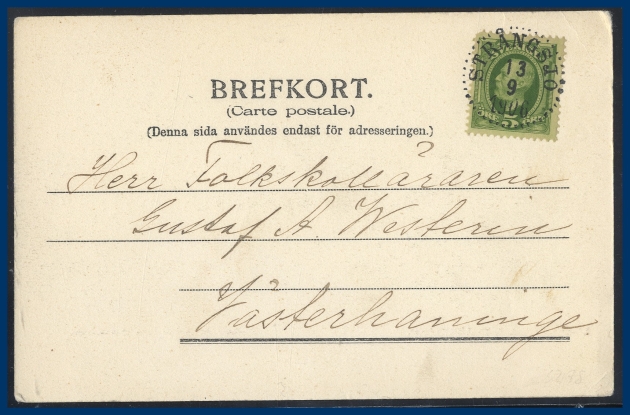 STRÅNGSJÖ
13
9
BREFKORT.
(Carte postale.)
(Denna sida användes endast för adresseringen.)
Herr Folkskolläraren
Gustaf A. Westerin
Västerhaninge.